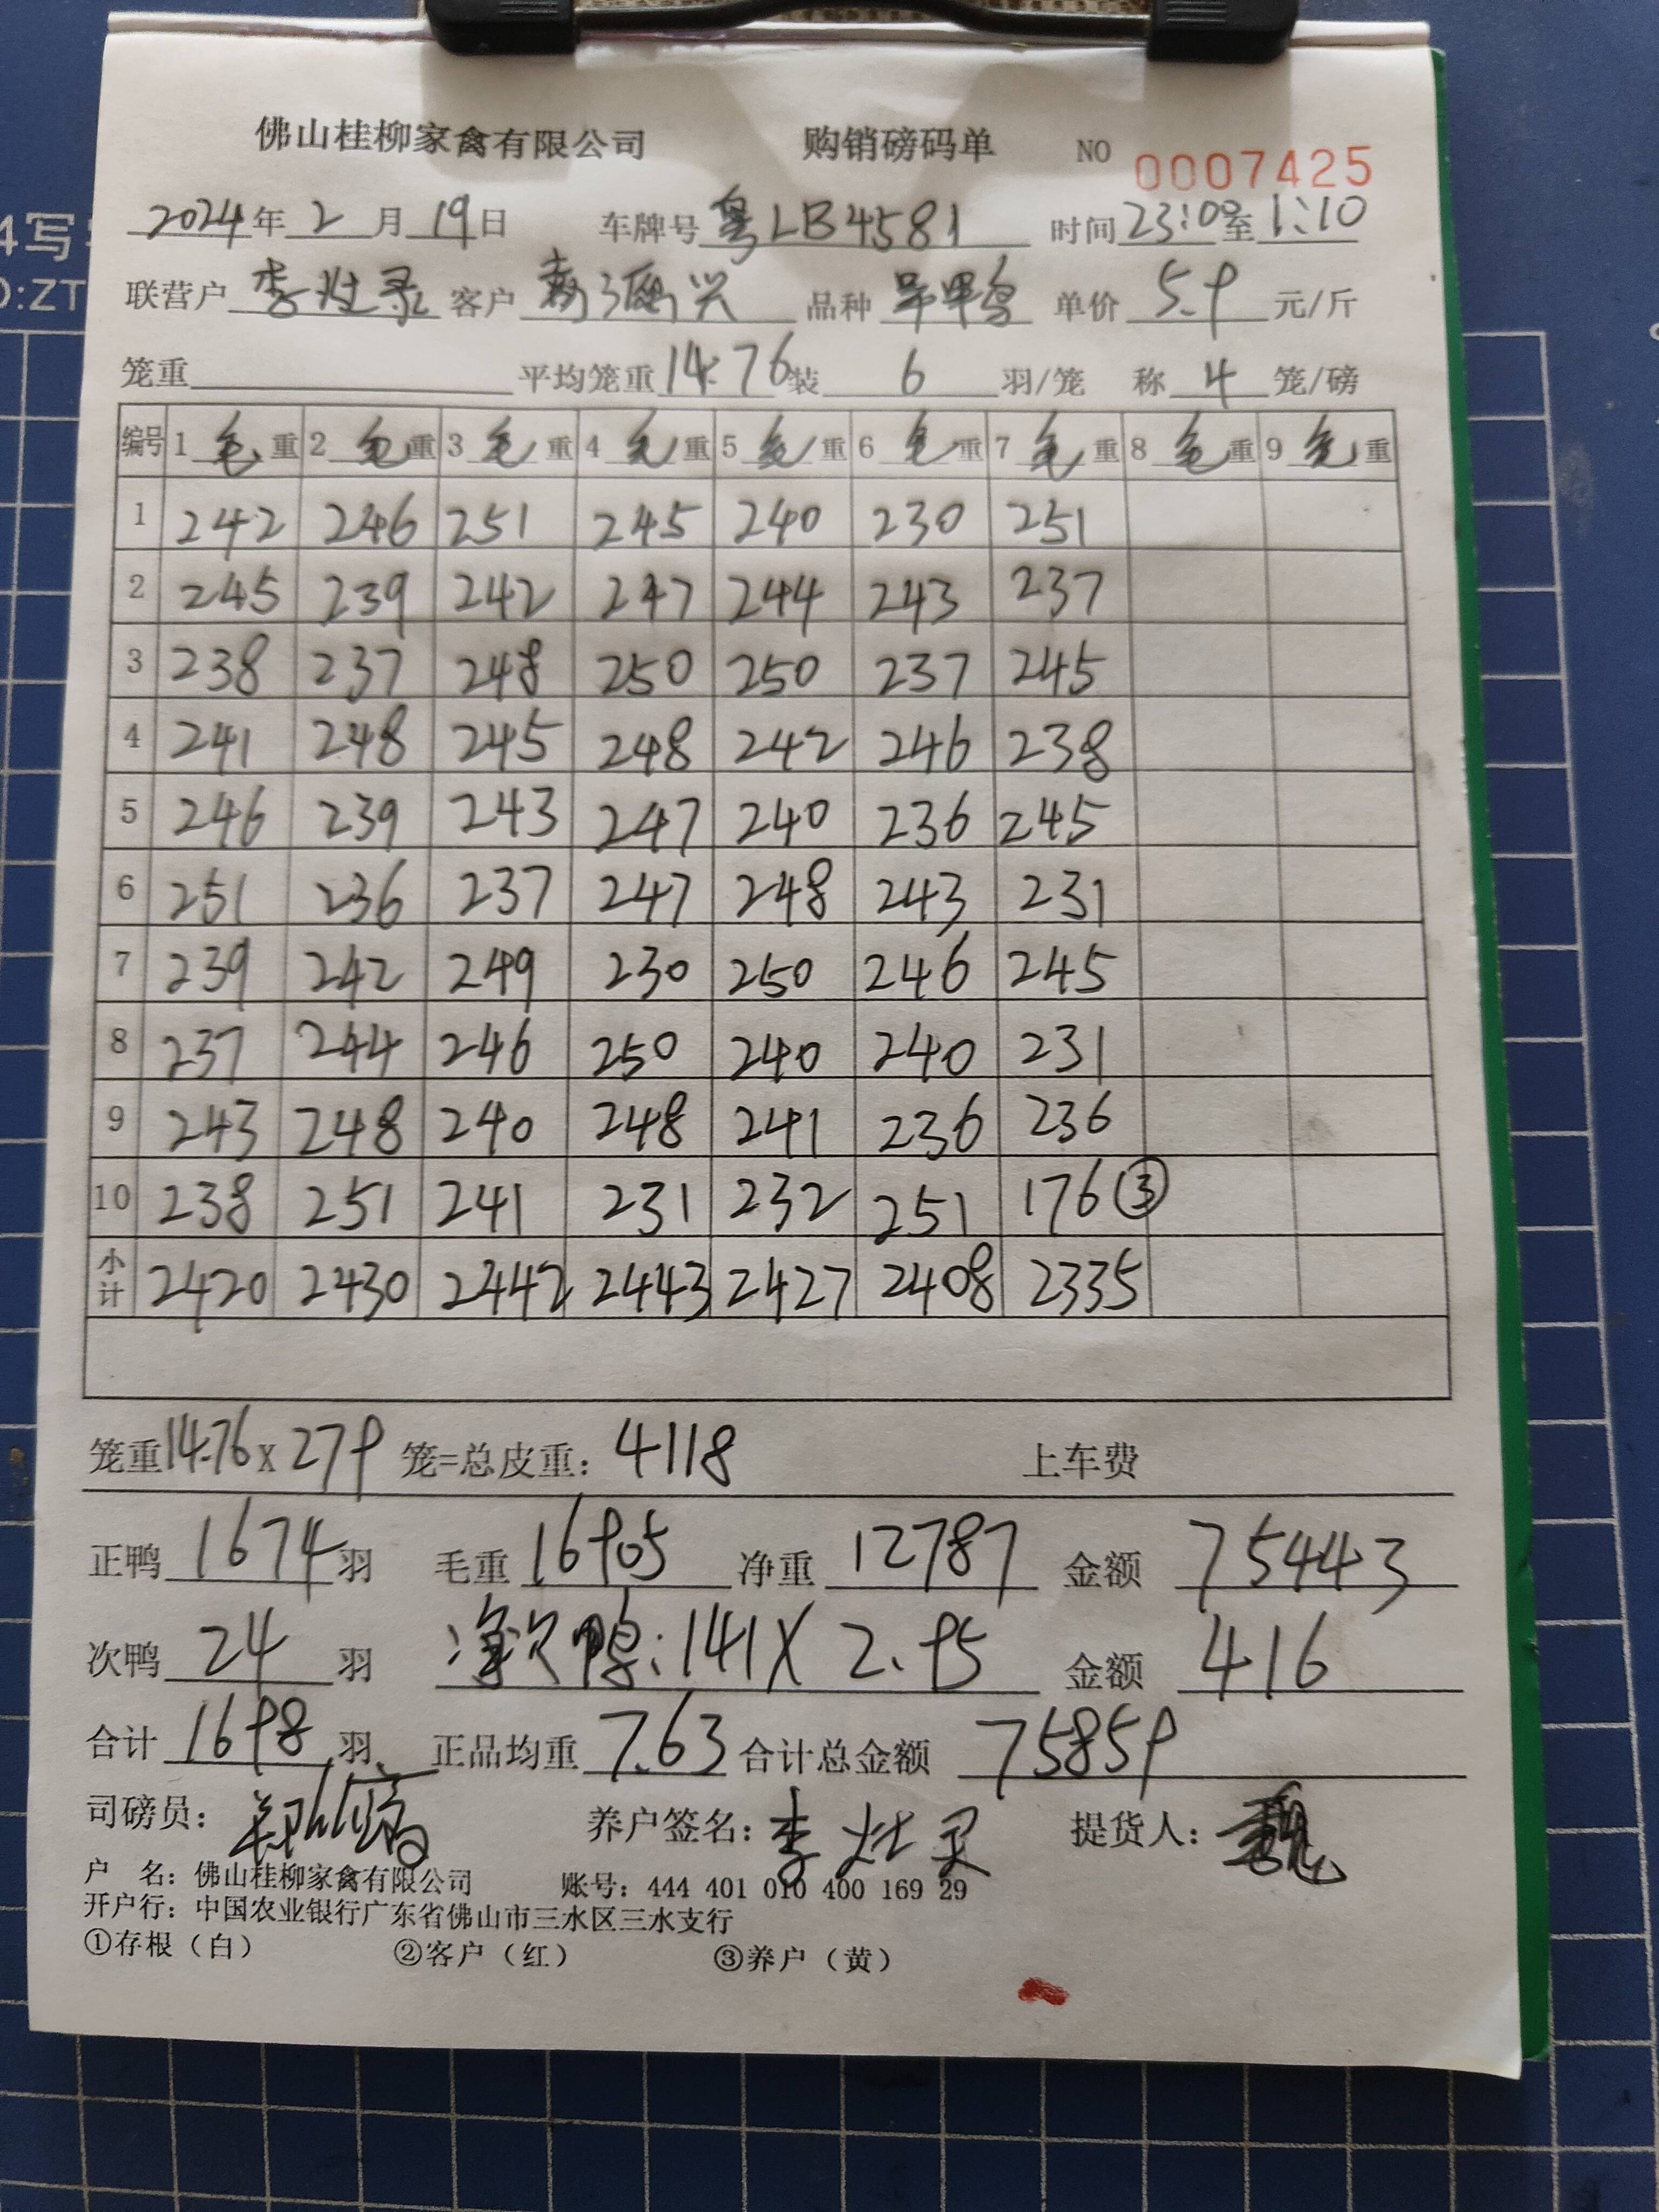 佛山桂柳家禽有限公司 购销磅码单 NO 0007425
2024年2月19日 车牌号 粤LB4581 时间 23:00至1:10
联营户 李灶灵 客户 振兴 品种 单价 5.9 元/斤
笼重 平均笼重 14.76 装 6 羽/笼 称 4 笼/磅
编号 1 毛重 2 毛重 3 毛重 4 毛重 5 毛重 6 毛重 7 毛重 8 毛重 9 毛重
1 242 246 251 245 240 230 251
2 245 239 242 247 244 243 237
3 238 237 248 250 250 237 245
4 241 248 245 248 242 246 238
5 246 239 243 247 240 236 245
6 251 236 237 247 248 243 231
7 239 242 249 230 250 246 245
8 237 244 246 250 240 240 231
9 243 248 240 248 241 236 236
10 238 251 241 231 232 251 176 ③
小计 2420 2430 2442 2443 2427 2408 2335
笼重 14.76 X 279 笼=总皮重: 4118 上车费
正鸭 1674 羽 毛重 16905 净重 12787 金额 75443
次鸭 24 羽 净次鸭:141X 2.95 金额 416
合计 1698 羽 正品均重 7.63 合计总金额 75859
司磅员: 养户签名: 李灶灵 提货人: 魏
户 名: 佛山桂柳家禽有限公司 账号: 444 401 010 400 169 29
开户行: 中国农业银行广东省佛山市三水区三水支行
①存根（白） ②客户（红） ③养户（黄）